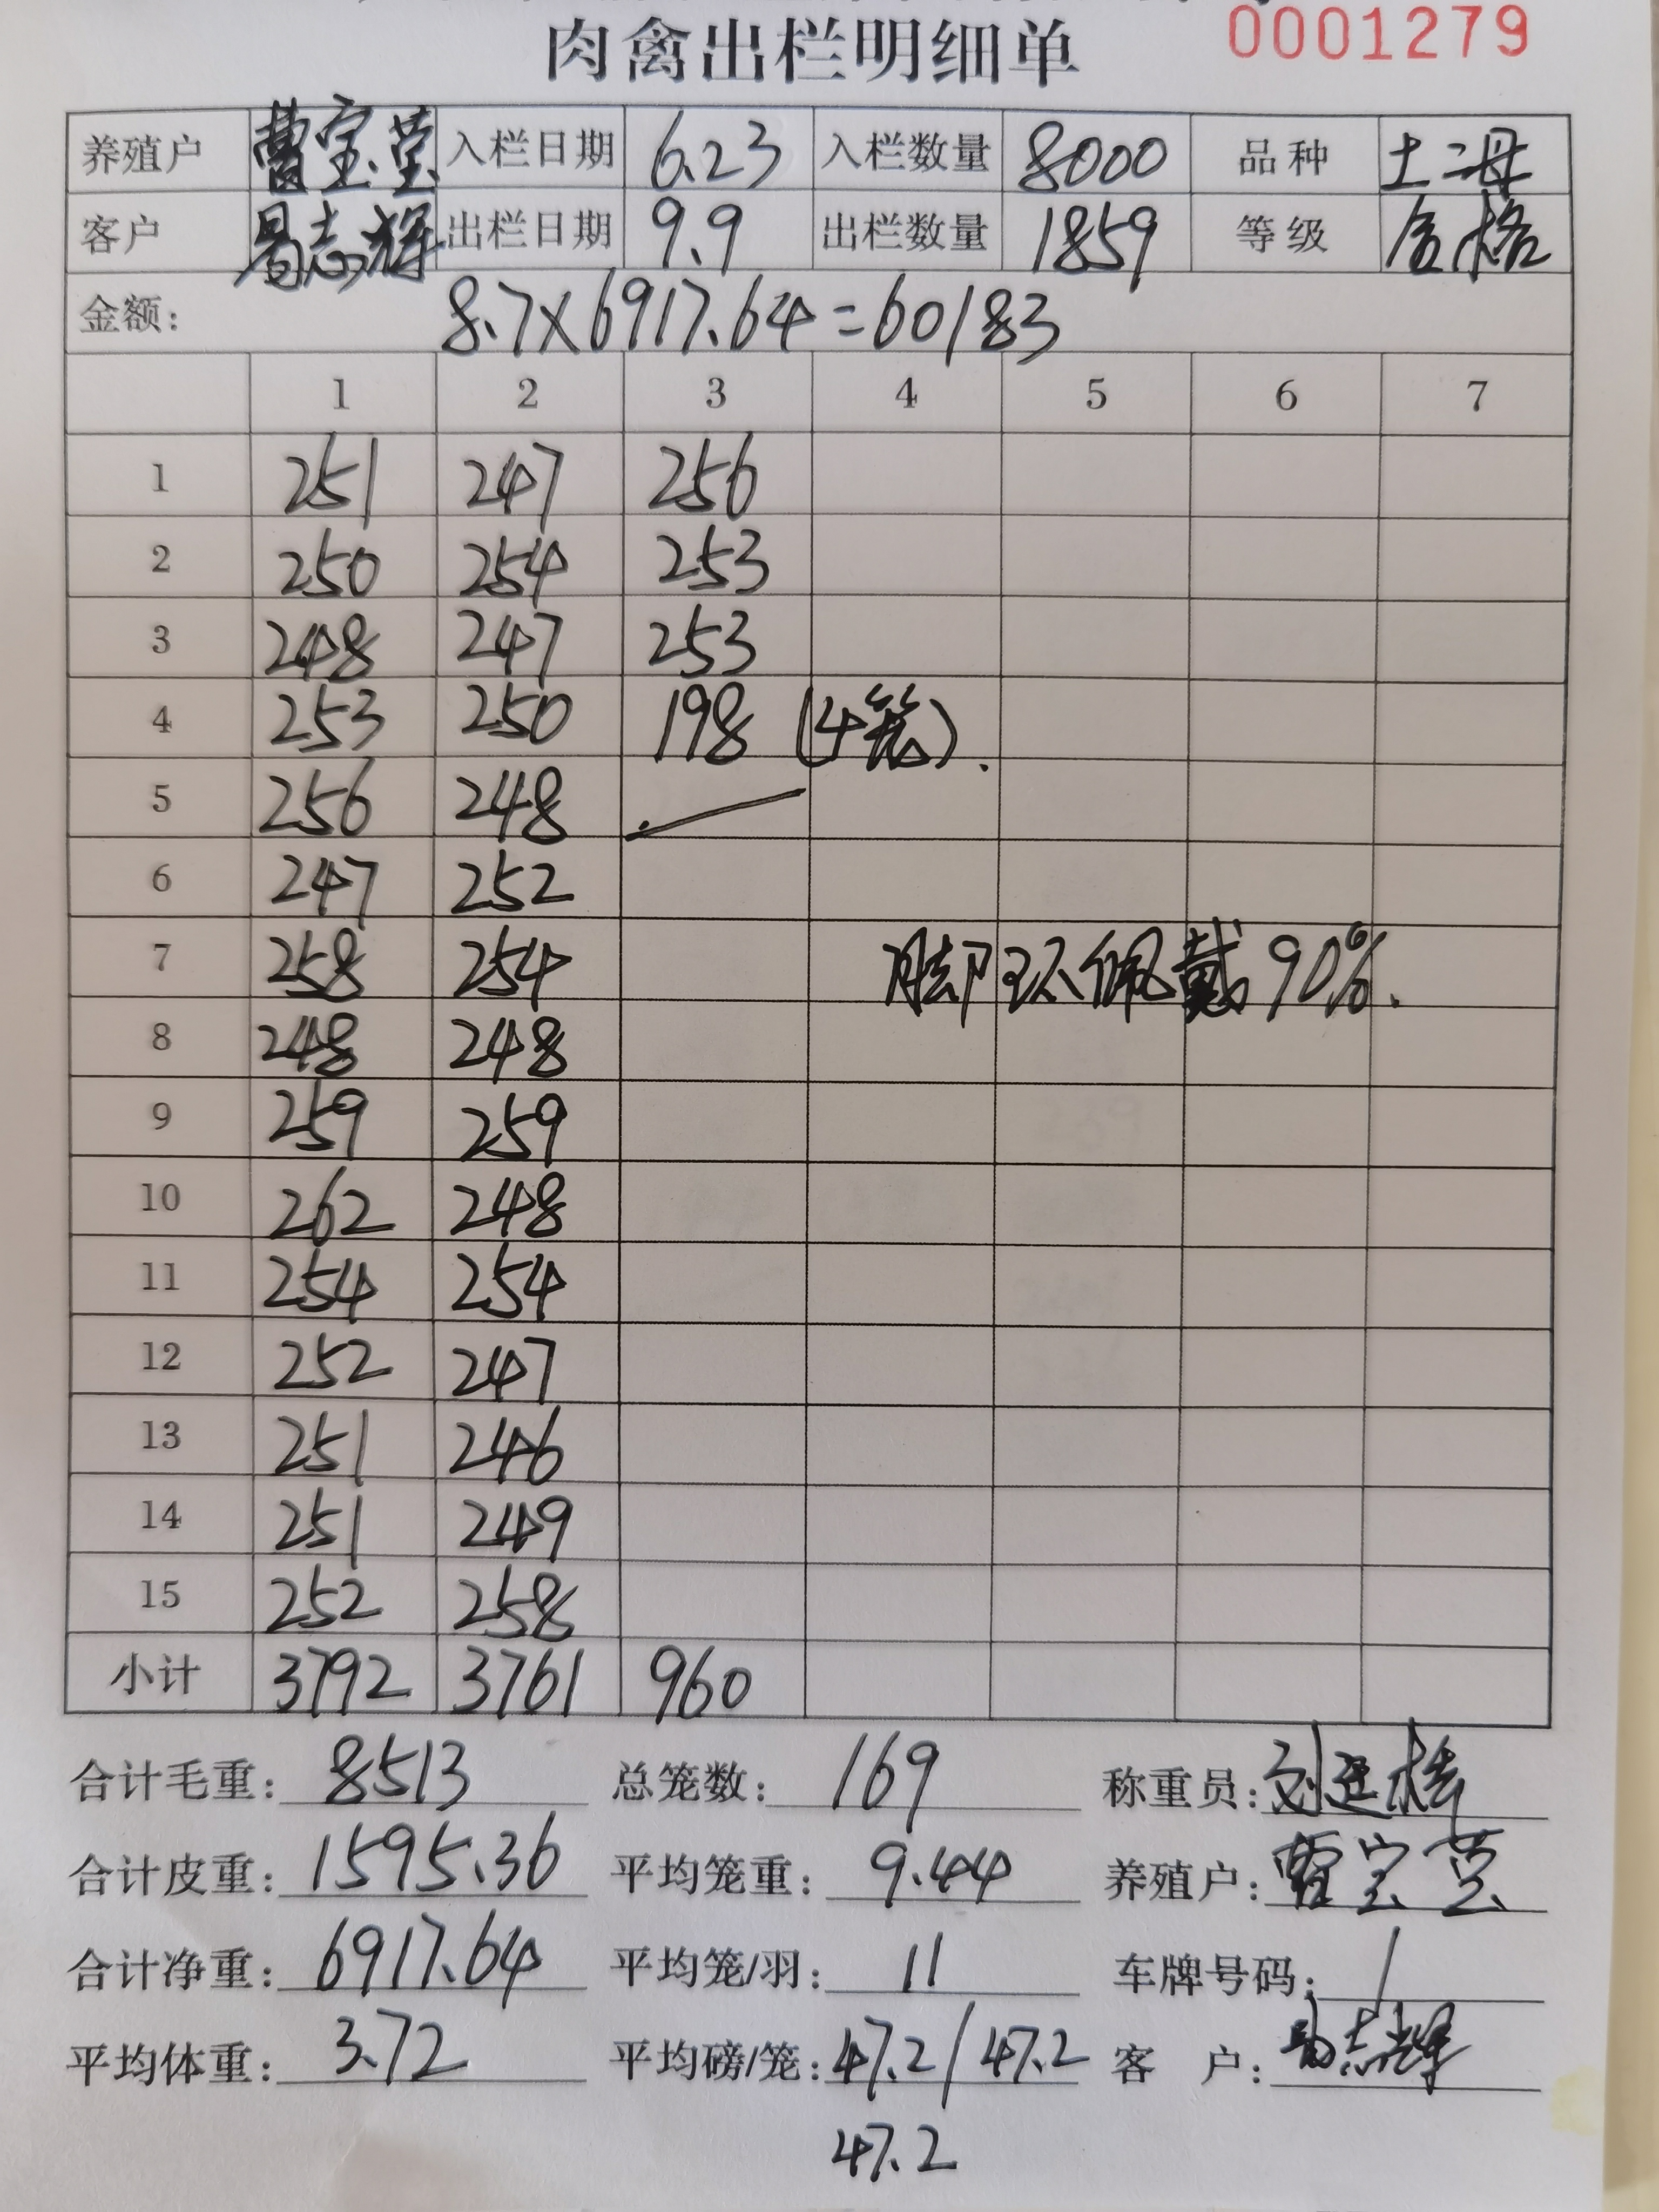 肉禽出栏明细单 0001279
养殖户 曹宝莹 入栏日期 6.23 入栏数量 8000 品种 土二母
客户 易志辉 出栏日期 9.9 出栏数量 1859 等级 合格
金额: 8.7×6917.64=60183
1 2 3 4 5 6 7
1 251 247 256
2 250 254 253
3 248 247 253
4 253 250 198 (4笼).
5 256 248
6 247 252
7 258 254 脚环佩戴90%.
8 248 248
9 259 259
10 262 248
11 254 254
12 252 247
13 251 246
14 251 249
15 252 258
小计 3792 3761 960
合计毛重: 8513 总笼数: 169 称重员:
合计皮重: 1595.36 平均笼重: 9.44 养殖户: 曹宝莹
合计净重: 6917.64 平均笼/羽: 11 车牌号码: /
平均体重: 3.72 平均磅/笼: 47.2/47.2 客 户: 易志辉
47.2